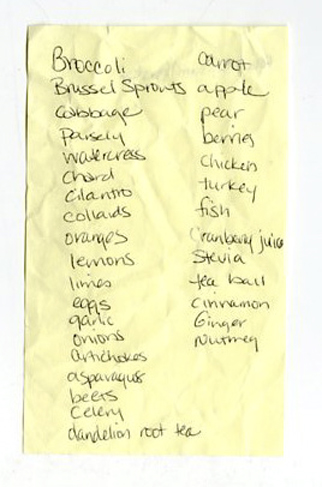 Broccoli
Brussel Sprouts
Cabbage
Parsely
watercress
Chard
Cilantro
collards
oranges
lemons
limes
eggs
garlic
onions
artichokes
asparagus
beets
Celery
dandelion root tea
Carrot
apple
pear
berries
Chicken
turkey
fish
Cranberry juice
Stevia
tea ball
cinnamon
Ginger
Nutmeg